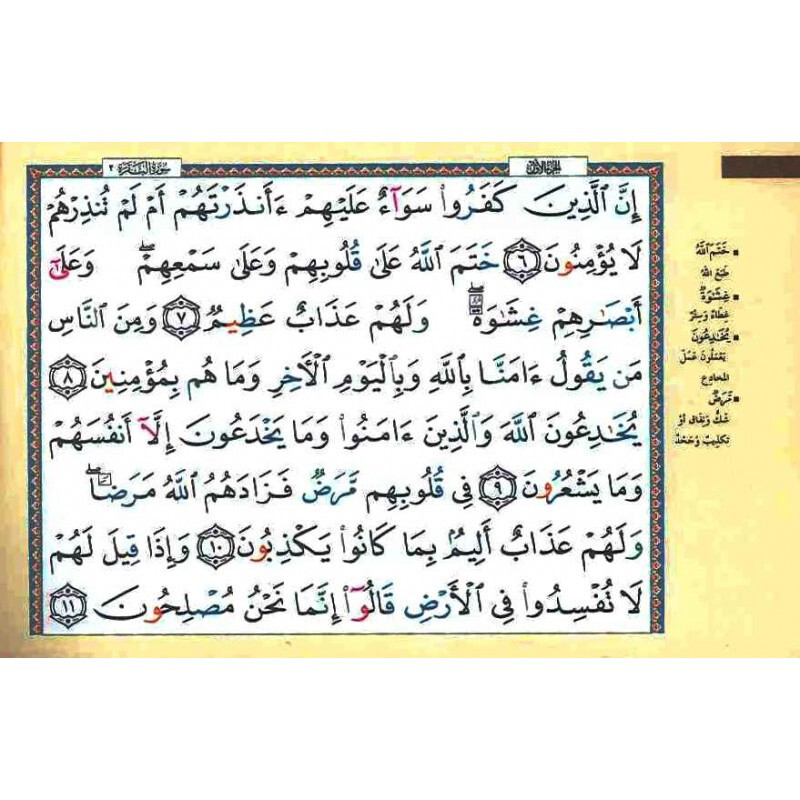 سورة البقرة ٢
الجزء الأول
إِنَّ ٱلَّذِينَ كَفَرُوا۟ سَوَآءٌ عَلَيْهِمْ ءَأَنذَرْتَهُمْ أَمْ لَمْ تُنذِرْهُمْ
لَا يُؤْمِنُونَ ٦ خَتَمَ ٱللَّهُ عَلَىٰ قُلُوبِهِمْ وَعَلَىٰ سَمْعِهِمْ ۖ وَعَلَىٰٓ
أَبْصَٰرِهِمْ غِشَٰوَةٌ ۖ وَلَهُمْ عَذَابٌ عَظِيمٌ ٧ وَمِنَ ٱلنَّاسِ
مَن يَقُولُ ءَامَنَّا بِٱللَّهِ وَبِٱلْيَوْمِ ٱلْأَخِرِ وَمَا هُم بِمُؤْمِنِينَ ٨
يُخَٰدِعُونَ ٱللَّهَ وَٱلَّذِينَ ءَامَنُوا۟ وَمَا يَخْدَعُونَ إِلَّآ أَنفُسَهُمْ
وَمَا يَشْعُرُونَ ٩ فِى قُلُوبِهِم مَّرَضٌ فَزَادَهُمُ ٱللَّهُ مَرَضًا ۖ
وَلَهُمْ عَذَابٌ أَلِيمٌۢ بِمَا كَانُوا۟ يَكْذِبُونَ ١٠ وَإِذَا قِيلَ لَهُمْ
لَا تُفْسِدُوا۟ فِى ٱلْأَرْضِ قَالُوٓا۟ إِنَّمَا نَحْنُ مُصْلِحُونَ ١١
▪ خَتَمَ ٱللَّهُ
طَبَعَ اللَّهُ
▪ غِشَٰوَةٌ
غِطَاءٌ وَسِتْرٌ
▪ يُخَٰدِعُونَ
يَعْمَلُونَ عَمَلَ
المخادع
▪ مَّرَضٌ
شَكٌّ وَنِفَاقٌ أَوْ
تَكْذِيبٌ وَجَحْدٌ